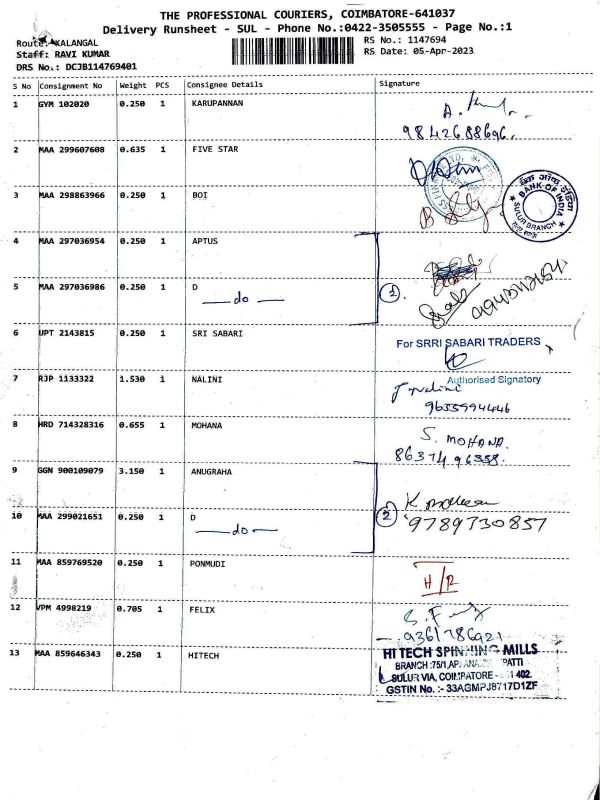 THE PROFESSIONAL COURIERS, COIMBATORE-641037
Delivery Runsheet - SUL - Phone No.:0422-3505555 - Page No.:1
Route: KALANGAL
Staff: RAVI KUMAR
DRS No.: DCJB114769401
RS No.: 1147694
RS Date: 05-Apr-2023
S No Consignment No Weight PCS Consignee Details Signature
1 GYM 102020 0.250 1 KARUPANNAN
9842688696.
2 MAA 299607608 0.635 1 FIVE STAR
3 MAA 298863966 0.250 1 BOI
BANK OF INDIA
SULUR BRANCH
4 MAA 297036954 0.250 1 APTUS
5 MAA 297036986 0.250 1 D
do
2.
6 UPT 2143815 0.250 1 SRI SABARI
For SRRI SABARI TRADERS
Authorised Signatory
7 RJP 1133322 1.530 1 NALINI
9655994446
8 HRD 714328316 0.655 1 MOHANA
S. MOHANA
86374 96558.
9 GGN 900109079 3.150 1 ANUGRAHA
10 MAA 299021651 0.250 1 D
do
2
9789730857
11 MAA 859769520 0.250 1 PONMUDI
H/R
12 VPM 4998219 0.705 1 FELIX
9361786921
13 MAA 859646343 0.250 1 HITECH
HI TECH SPINNING MILLS
BRANCH :75/1,
SULUR VIA, COIMBATORE - 402.
GSTIN No. :- 33AGMPJ8717D1ZF